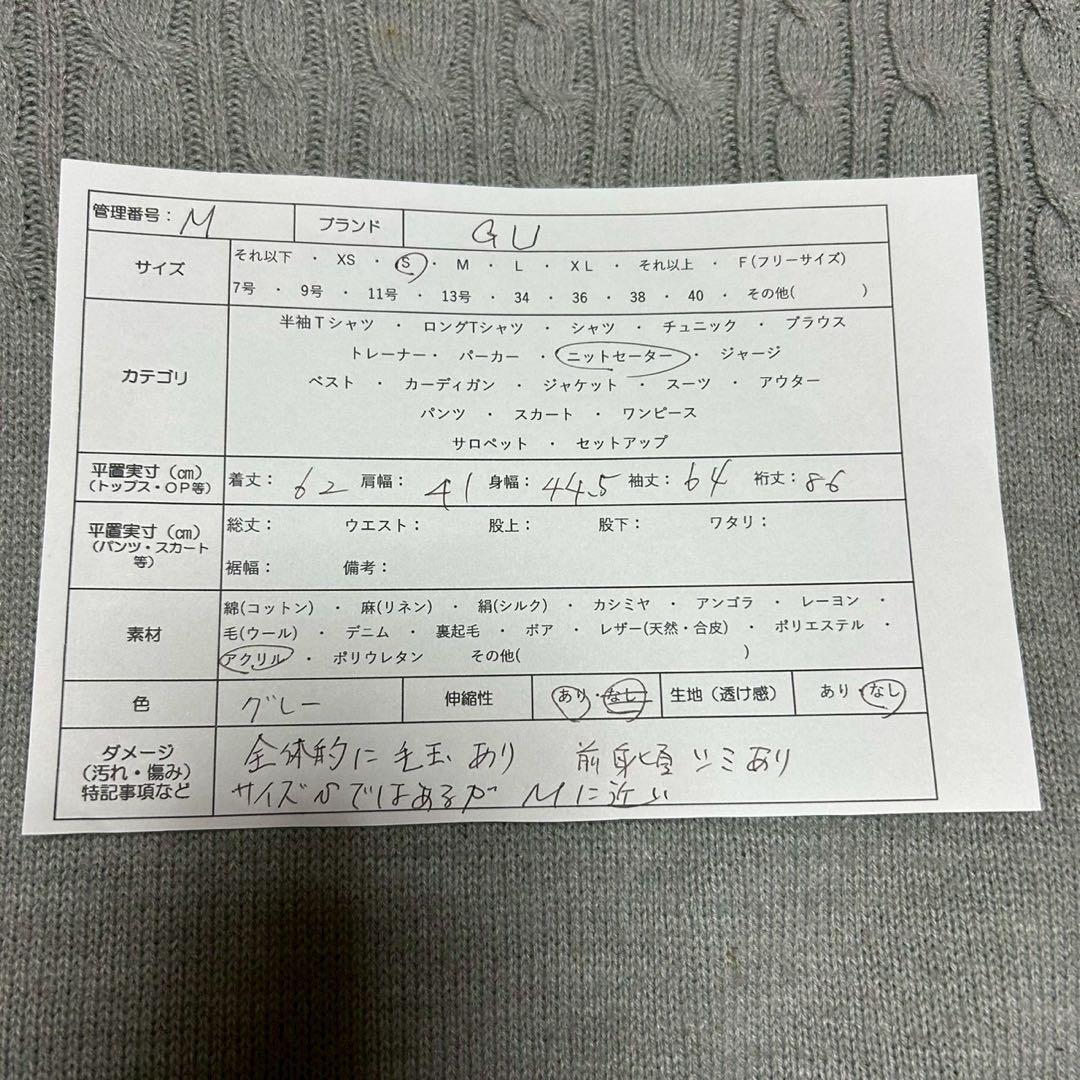 管理番号: M ブランド GU
サイズ それ以下 ・ XS ・ S ・ M ・ L ・ XL ・ それ以上 ・ F(フリーサイズ)
7号 ・ 9号 ・ 11号 ・ 13号 ・ 34 ・ 36 ・ 38 ・ 40 ・ その他( )
カテゴリ
半袖Tシャツ ・ ロングTシャツ ・ シャツ ・ チュニック ・ ブラウス
トレーナー・ パーカー ・ ニットセーター ・ ジャージ
ベスト ・ カーディガン ・ ジャケット ・ スーツ ・ アウター
パンツ ・ スカート ・ ワンピース
サロペット ・ セットアップ
平置実寸(cm)
(トップス・OP等)
着丈: 62 肩幅: 41 身幅: 44.5 袖丈: 64 裄丈: 86
平置実寸(cm)
(パンツ・スカート
等)
総丈: ウエスト: 股上: 股下: ワタリ:
裾幅: 備考:
素材
綿(コットン) ・ 麻(リネン) ・ 絹(シルク) ・ カシミヤ ・ アンゴラ ・ レーヨン ・
毛(ウール) ・ デニム ・ 裏起毛 ・ ボア ・ レザー(天然・合皮) ・ ポリエステル ・
アクリル ・ ポリウレタン その他( )
色 グレー 伸縮性 あり・なし 生地(透け感) あり・なし
ダメージ
(汚れ・傷み)
特記事項など
全体的に毛玉あり 前身頃シミあり
サイズSではあるが Mに近い